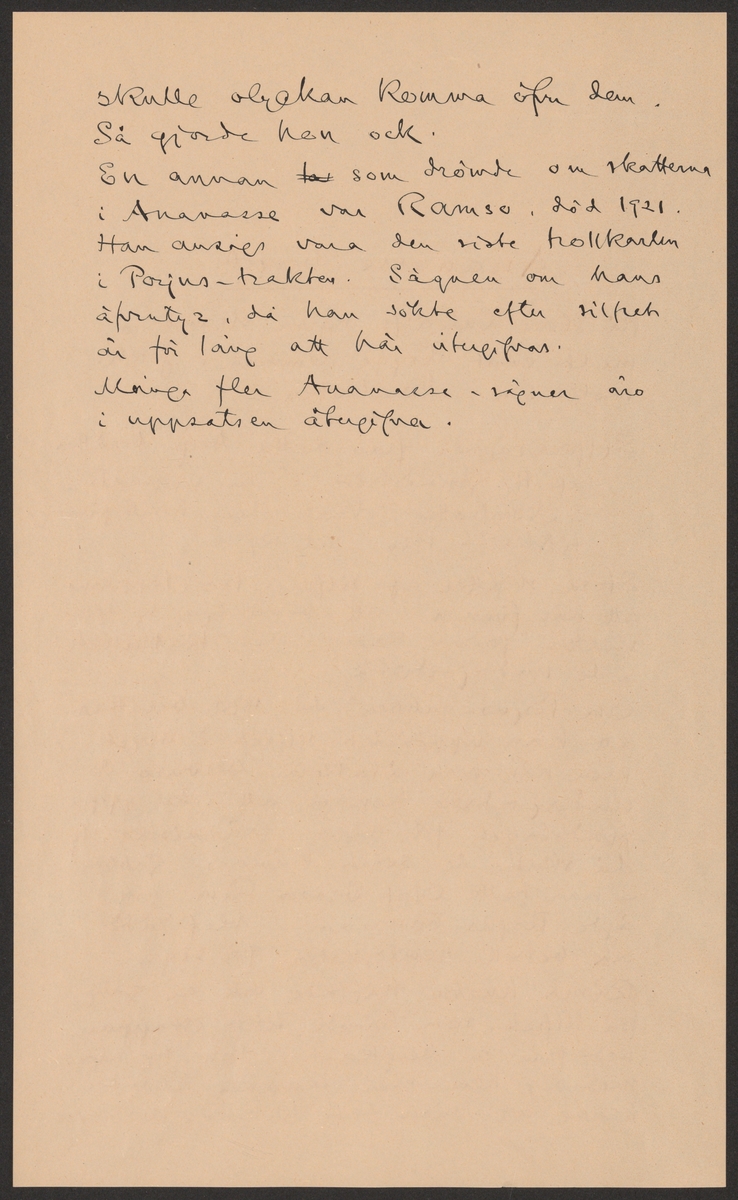 skulle olyckan komma öfver dem.
Så gjorde han ock.
En annan som drömde om skatterna
i Anavasse var Ramso, död 1921.
Han ansågs vara den siste trollkarlen
i Porjus-trakten. Sägnen om hans
äfventyr, då han sökte efter silfret
är för lång att här återgifvas.
Många fler Anavasse-sägner äro
i uppsatsen återgifna.